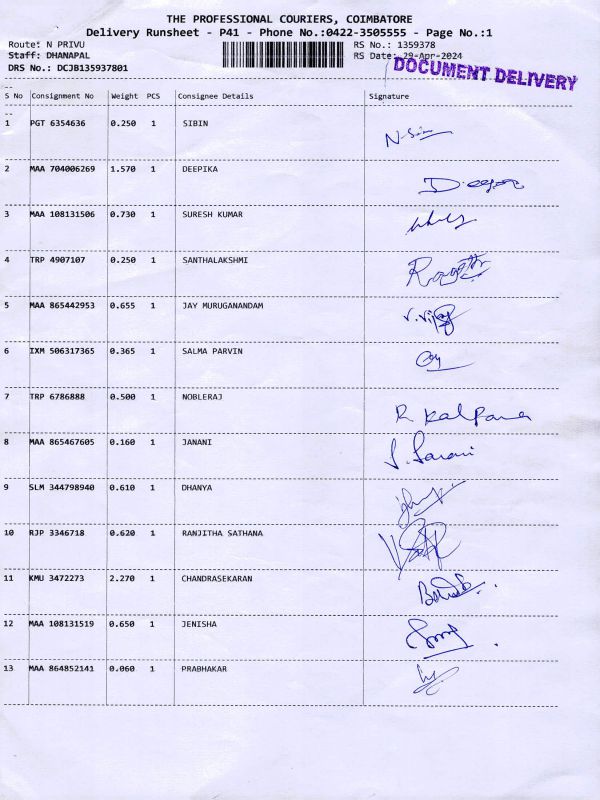 THE PROFESSIONAL COURIERS, COIMBATORE
Delivery Runsheet - P41 - Phone No.:0422-3505555 - Page No.:1
Route: N PRIVU RS No.: 1359378
Staff: DHANAPAL RS Date: 29-Apr-2024
DRS No.: DCJB135937801
DOCUMENT DELIVERY
S No Consignment No Weight PCS Consignee Details Signature
1 PGT 6354636 0.250 1 SIBIN
2 MAA 704006269 1.570 1 DEEPIKA
3 MAA 108131506 0.730 1 SURESH KUMAR
4 TRP 4907107 0.250 1 SANTHALAKSHMI
5 MAA 865442953 0.655 1 JAY MURUGANANDAM
6 IXM 506317365 0.365 1 SALMA PARVIN
7 TRP 6786888 0.500 1 NOBLERAJ R Kalpana
8 MAA 865467605 0.160 1 JANANI
9 SLM 344798940 0.610 1 DHANYA
10 RJP 3346718 0.620 1 RANJITHA SATHANA
11 KMU 3472273 2.270 1 CHANDRASEKARAN
12 MAA 108131519 0.650 1 JENISHA
13 MAA 864852141 0.060 1 PRABHAKAR